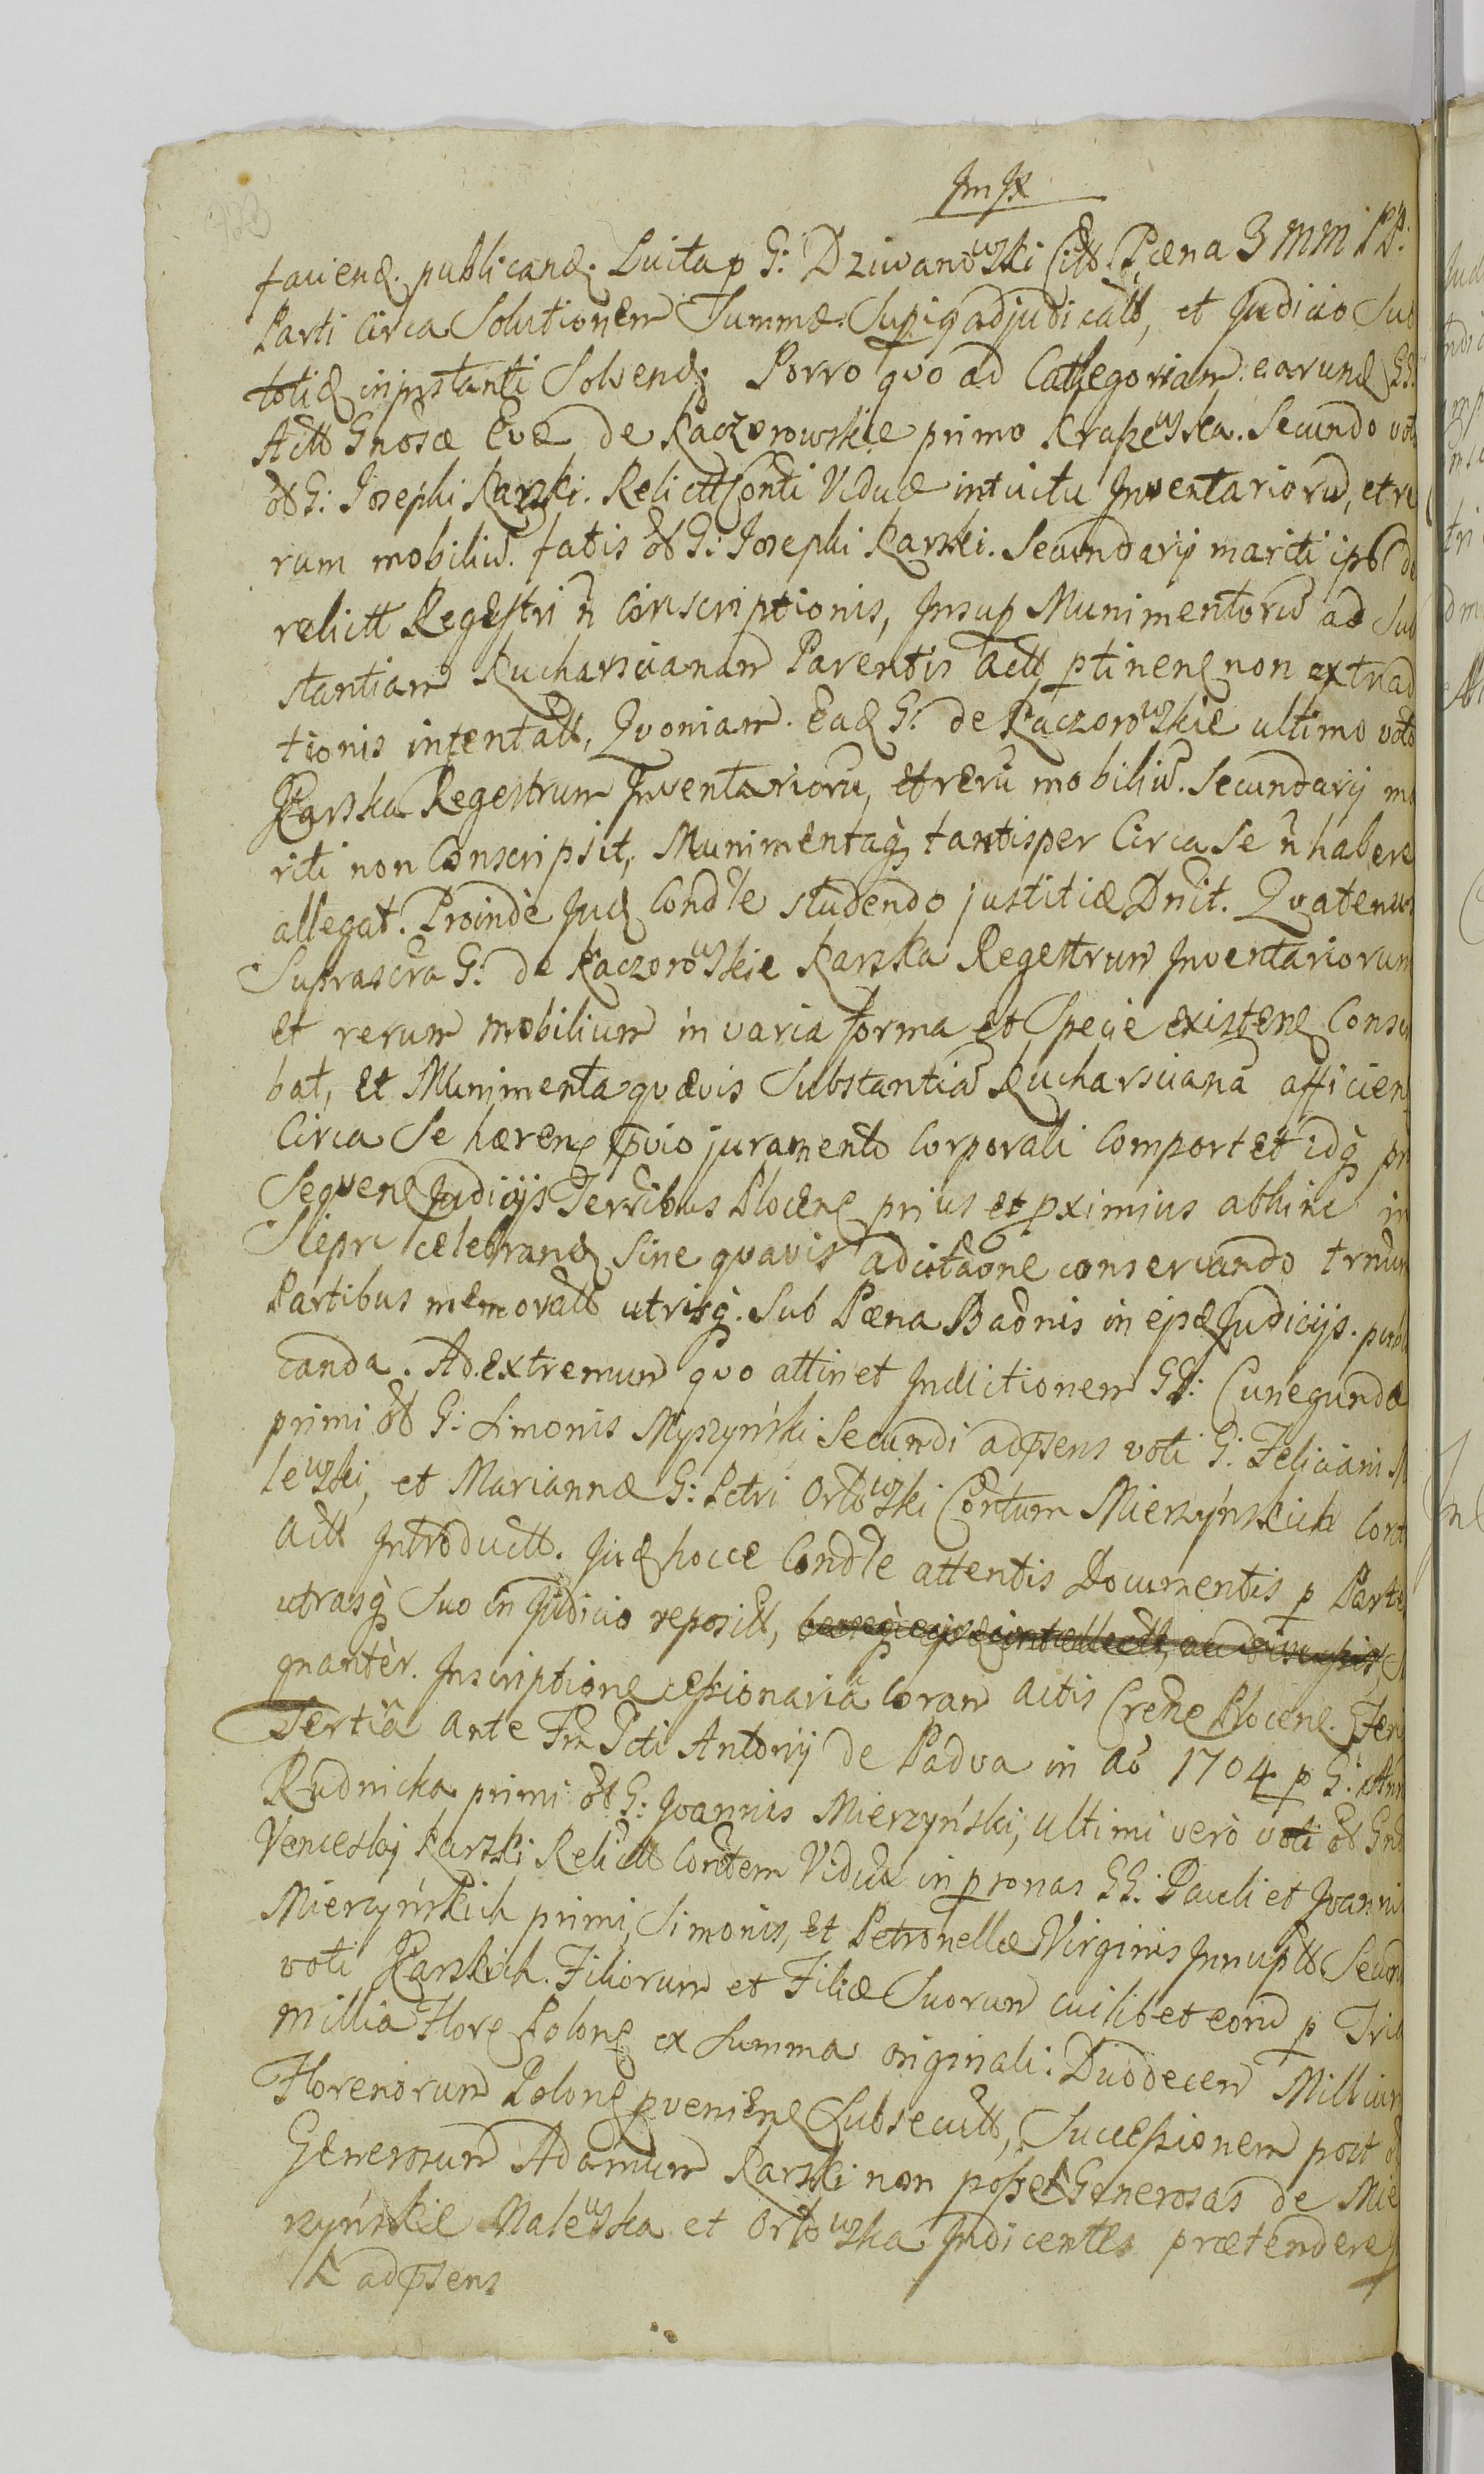 faciend. publicand. Luita p G: Dziwanowski Citt. Pæna 3 MM PP:
Parti Circa Solutionem Summæ Supiq adjudicatt, et Judicio Sub
totid in instanti Solvend. Porro quo ad Cathegoriam earund GG:
Actt Gnosæ Evæ de Kaczorowskie primo Krajewska. Secundo voto
ol G: Josephi Karski. Relictt Conti Viduæ intuitu Inventariorū, et re
rum mobiliū. fatis ol G: Josephi Karski. Secundarij mariti ips de
relictt Regestri ñ Conscriptionis, Insup Munimentorū ad Sub
stantiam Kucharscianam Parentis Actt ptinen non extrad
tionis intentatt, Quoniam. Ead G: de Kaczorowskie ultimo voto
Karska Regestrum Inventarioru, et reru mobiliū. Secundarij ma
riti non Conscripsit, Munimentaq tantisper Circa Se ñ habere
allegat. Proindè Jud Condle studendo justitiæ Drnit. Quatenus
Suprascra G: de Kaczorowskie Karska Regestrum Inventariorum
et rerum mobilium in varia forma et Specie existen Conscri
bat, et Munimenta quævis Substantiā Kucharscianā afficien
Circa Se hæren pvio juramento Corporali Comportet idq pr
Sequen Judicijs Terribus Plocen prius et pximius abhinc in
Sieprc celebrand Sine quavis adcitaone conservando trnum
Partibus memoratt utrisq. Sub Pæna Badnis in ejsd Judicijs. publi
canda. Ad extremum quo attinet Indictionem GG: Cunegundæ
primi ol G: Simonis Myszyński Secundi adpsens voti G: Feliciani M
lewski, et Mariannæ G: Petri Orłowski Contum Mierzyńskich Cort
Actt Introductt. Jud hocce Condle attentis Documentis p Partes
utrasq Suo in Judicio repositt,
gnantèr. Inscriptione cessionariā Coram Actis Crehe Plocen. Feriā
Tertiā ante Fm Scti Antonij de Padva in Ao 1704 p G: Ann
Rudnicka primi ol G: Joannis Mierzyński, ultimi verò voti ol Gnd
Venceslaj Karski Relictt Contem Viduæ in psonas GG: Pauli et Joannis
Mierzyńskich primi, Simonis, et Petronellæ Virginis Innuptt Secundi
voti Karskich. Filiorum et Filiæ Suorum cuilibet eorū p Tria
millia Flore Polone ex Summa originali: Duodecem Millium
Florenorum Polone pvenien Subsecutt, Successionem post ol
Generosum Adamum Karski non posse Generosas de Mie
rzyńskie Malewska et Orłowska Indicentes prætendere
adpsens